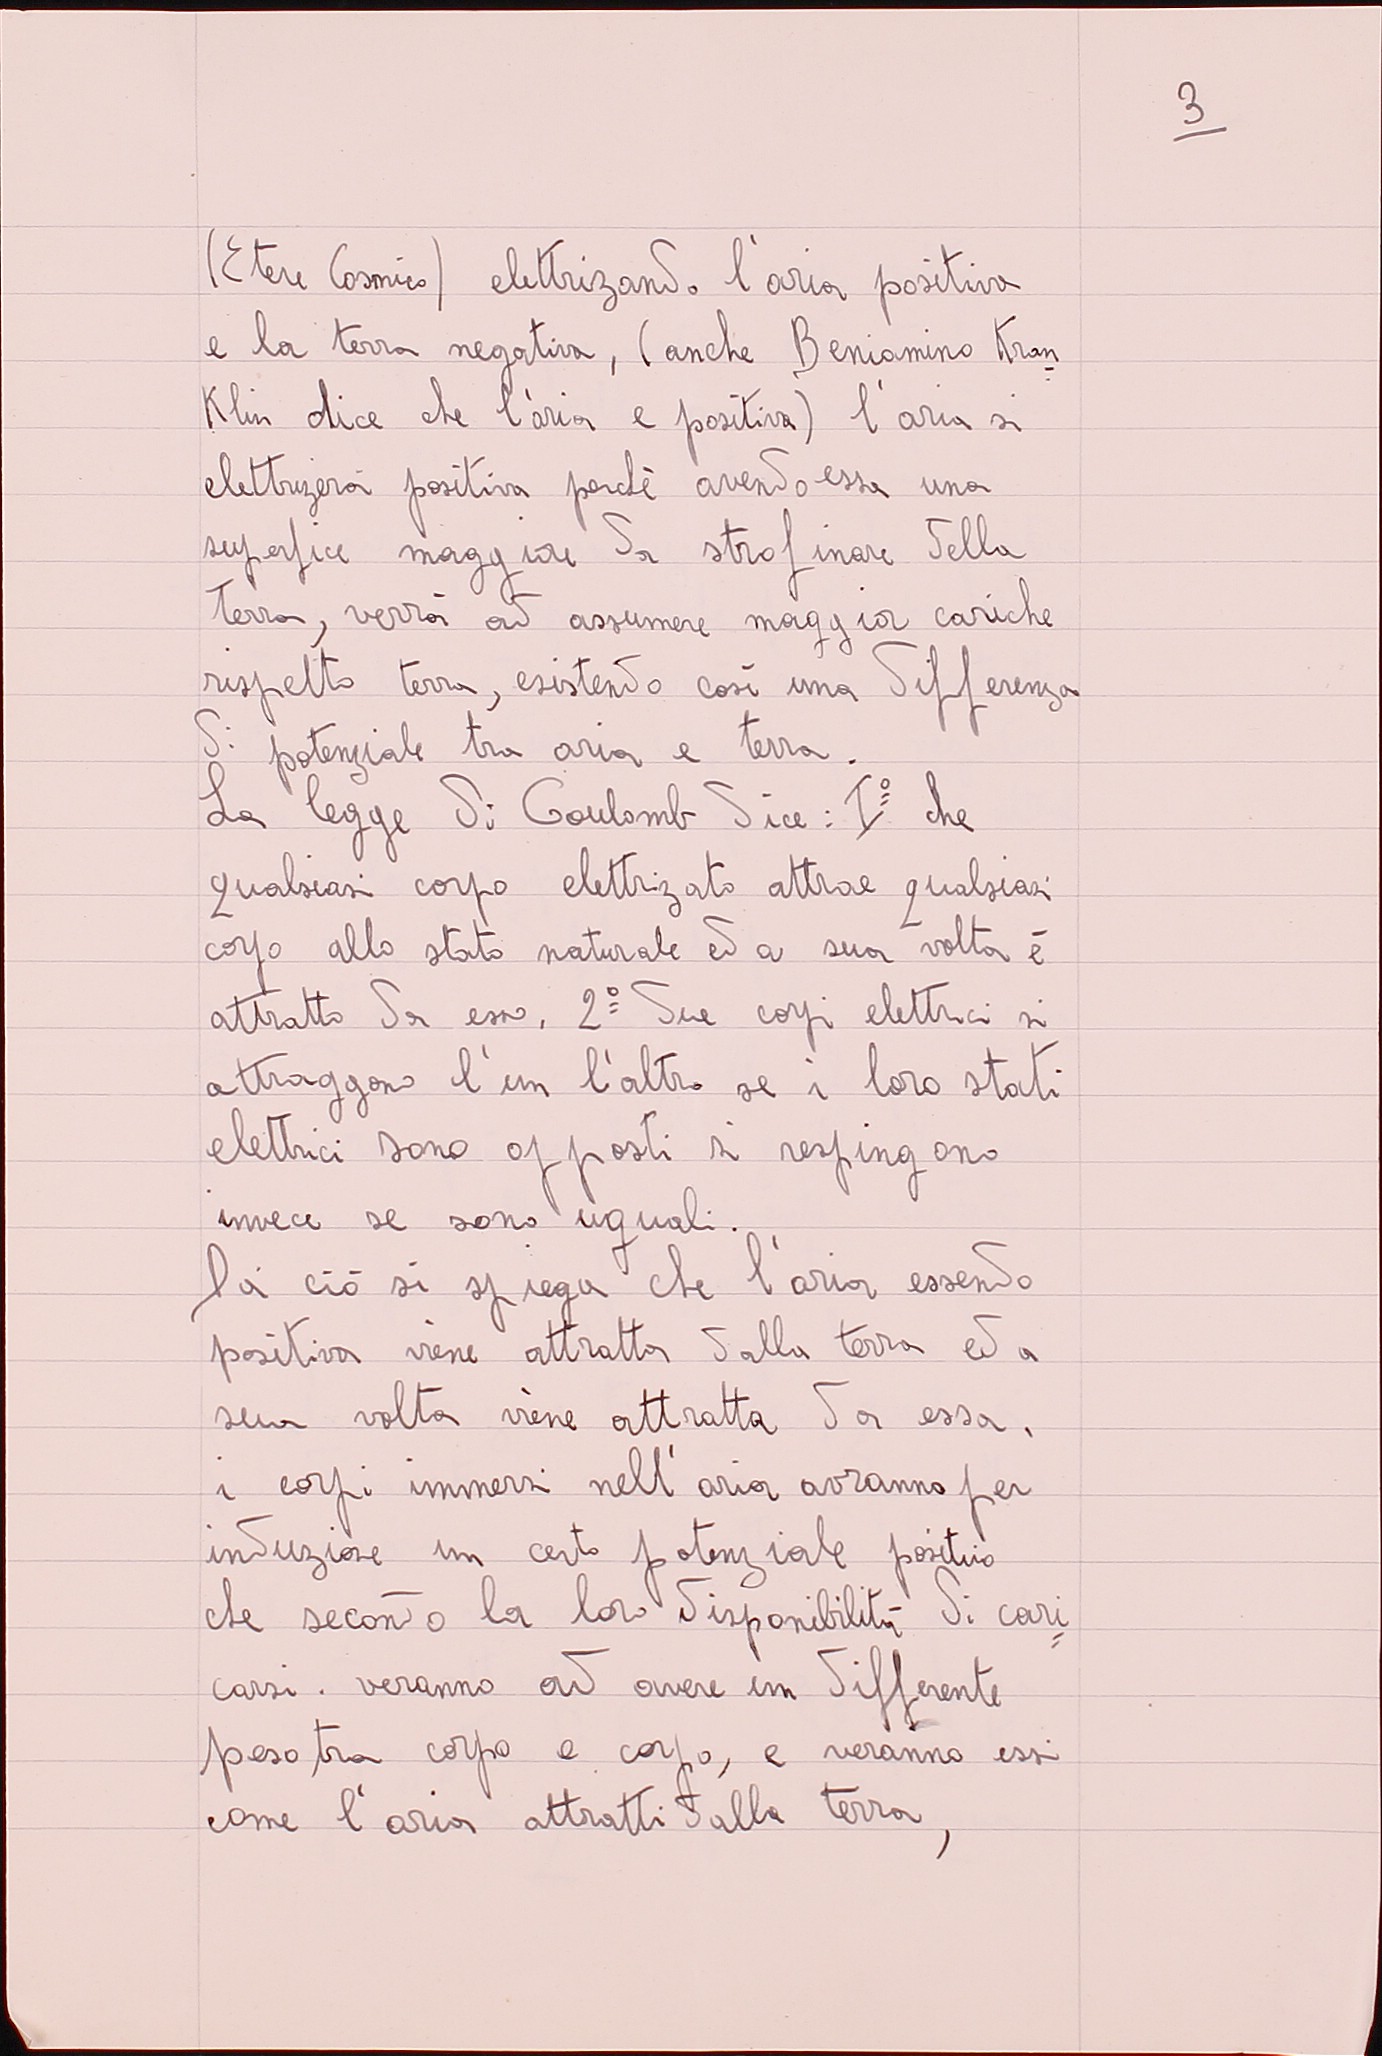 3
(Etere Cosmico) elettrizando l'aria positiva
e la terra negativa, (anche Beniamino Kran=
Klin dice che l'aria e positiva) l'aria si
elettrizerà positiva perchè avendo essa una
superfice maggiore da strofinare della
terra, verrà ad assumere maggior cariche
rispetto terra, esistendo così una differenza
di potenziale tra aria e terra.
La legge di Coulomb dice: I° che
qualsiasi corpo elettrizato attrae qualsiasi
corpo allo stato naturale ed a sua volta è
attratto da esso. 2° due corpi elettrici si
attraggono l'un l'altro se i loro stati
elettrici sono opposti si respingono
invece se sono uguali.
Da ciò si spiega che l'aria essendo
positiva viene attratta dalla terra ed a
sua volta viene attratta da essa.
i corpi immersi nell'aria avranno per
induzione un certo potenziale positivo
che secondo la loro disponibilità di cari=
carsi. veranno ad avere un differente
peso tra corpo e corpo, e veranno essi
come l'aria attratti dalla terra,